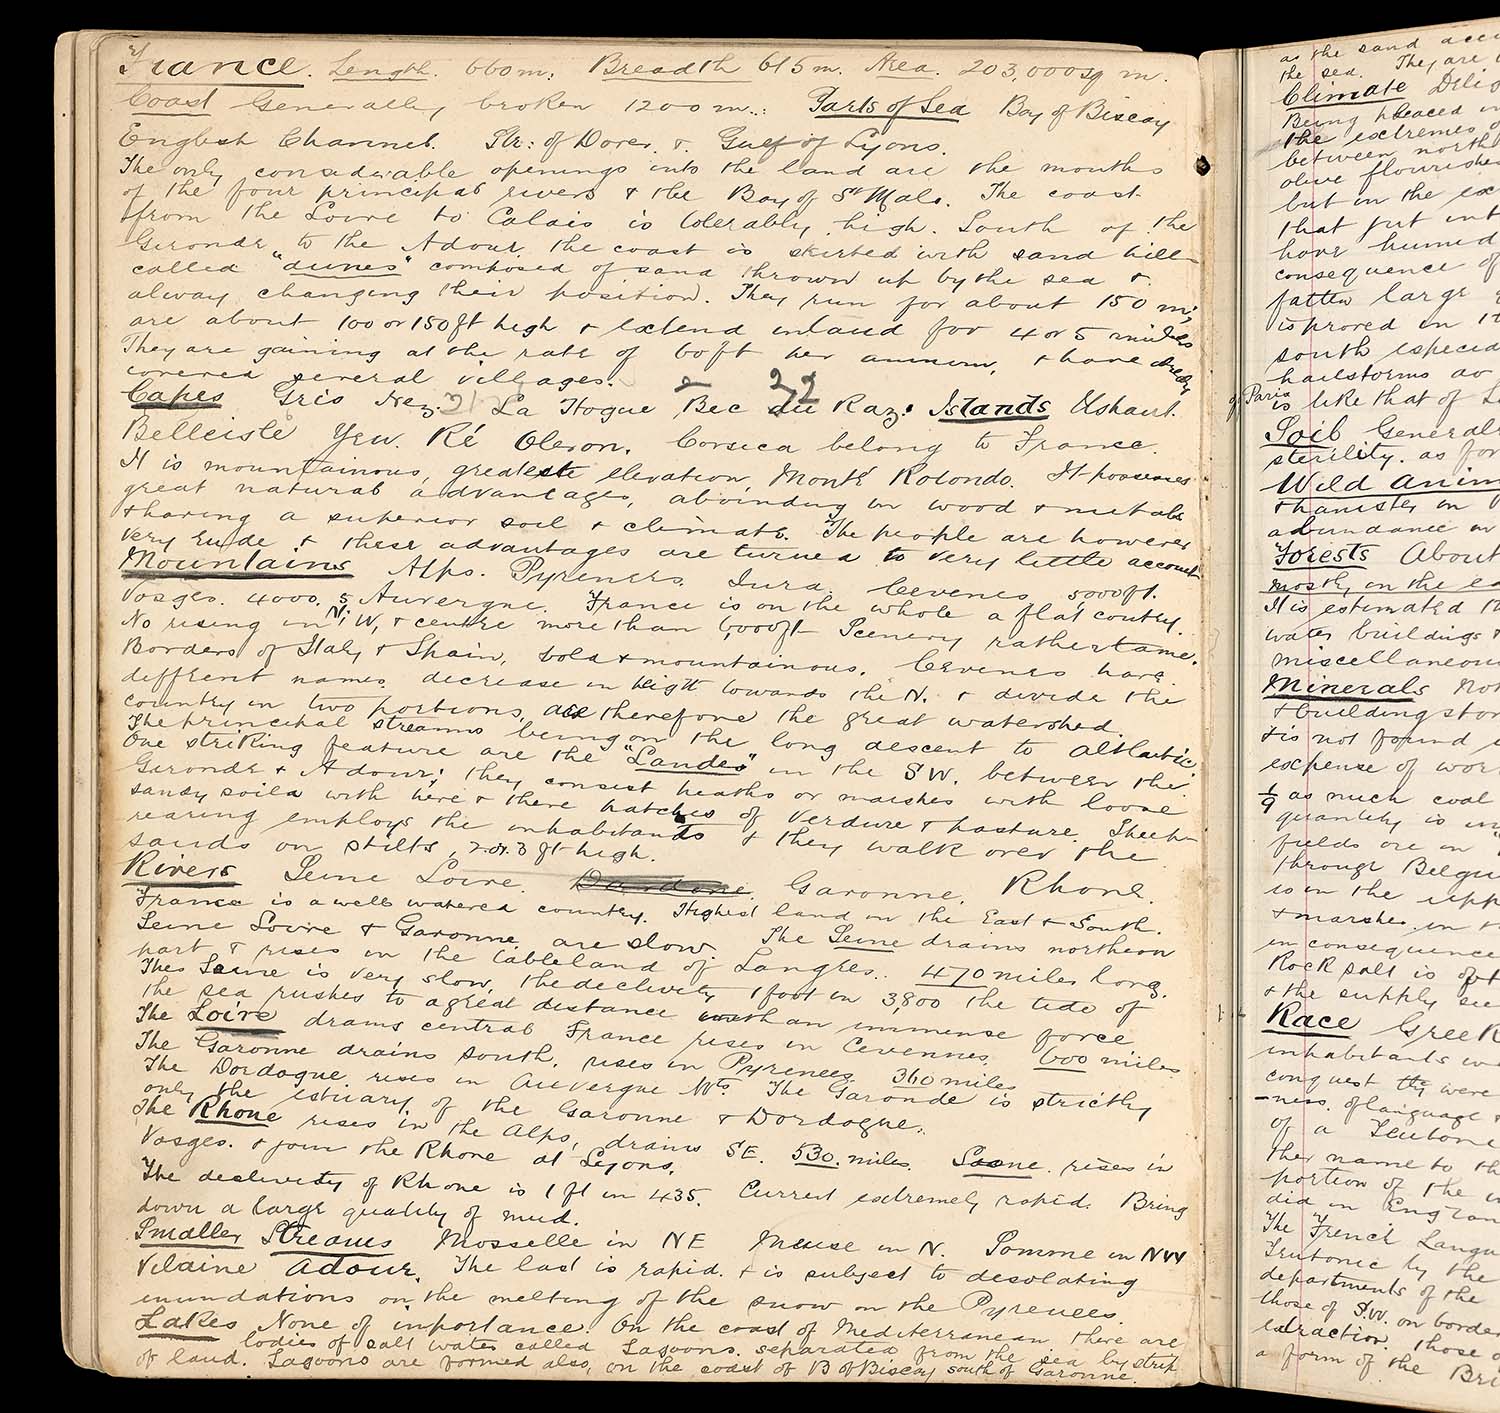 France. Length. 660m: Breadth 615m. Area. 203,000sq m.
Coast Generally broken 1200m.: Parts of Sea Bay of Biscay
English Channel. Str: of Dover. & Gulf of Lyons.
The only considerable openings into the land are the mouths
of the four principal rivers & the Bay of St Malo. The coast
from the Loire to Calais is tolerably high. South of the
Gironde to the Adour, the coast is skirted with sand hills
called "dunes" composed of sand thrown up by the sea &
alway changing their position. They run for about 150 m;
are about 100 or 150ft high & extend inland for 4 or 5 miles
They are gaining at the rate of 60ft per annum, & have
covered several villages.
Capes Gris Nez. La Hogue Bec du Raz: Islands Ushant.
Belleisle Yeu. Ré Oleron. Corsica belong to France.
It is mountainous, greatest elevation, Monte Rotondo. It possesses
great natural advantages, abounding in wood & metals
& having a superior soil & climate. The people are however
very rude & these advantages are turned to very little account
Mountains Alps. Pyrenees. Jura. Cevenes 5000ft.
Vosges. 4000. Auvergne. France is on the whole a flat contry.
No rising in N.W, & centre more than 1,000ft Scenery rather tame.
Borders of Italy & Spain, bold & mountainous. Cevenes have
deffrent names. decrease in hight towards the N. & divide the
country in two portions, are therefore the great watershed.
The principal streams being on the long descent to Altlantic.
One striking feature are the "Landes" in the SW. between the
Gironde & Adour; they consist heaths or marshes with loose
sandy soila with here & there patches of verdure & pasture. Sheep-
rearing employs the inhabitants & they walk over the
sands on stilts, 2 or 3 ft high.
Rivers Seine Loire. Dordone. Garonne. Rhone.
France is a well watered country. Highest land in the East & South.
Seine Loire & Garonne are slow. The Seine drains northern
part & rises in the tableland of Langres. 470 miles long.
The Seine is very slow, the declivity 1 foot in 3,800 the tide of
the sea rushes to a great distance with an immense force
The Loire drains central France rises in Cevennes. 600 miles
The Garonne drains south, rises in Pyrenees 360 miles
The Dordogne rises in Auvergne Mts. The Garonde is strictly
only the estuary of the Garonne & Dordogne.
The Rhone rises in the Alps, drains SE. 530 miles. Saone rises in
Vosges. & join the Rhone at Lyons.
The declivity of Rhone is 1 ft in 435. Current extremely rapid. Bring
down a large quality of mud.
Smaller Streams Mosselle in NE Meuse in N. Somme in NW
Vilaine Adour. The last is rapid. & is subject to desolating
inundations on the melting of the snow on the Pyrenees.
Lakes None of importance. On the coast of Mediterranean there are
bodies of salt water called Lagoons. separated from the sea by strip
of land. Lagoons are formed also, on the coast of B of Biscay south of Garonne.
as the sand
the sea. They are
Climate
Being placed in
the extremes of
between north
olive flourishes
but in the
that part
have humid
consequence of
fatten large
is proved in
south
hailstorms
of Paris is like that of
Soil Generally
sterility. as for
Wild
in
abundance in
Forests About
mostly, in the
It is estimated
water buildings &
miscellaneous
Minerals
& building
& is not found
expense of
1/9 as much coal
quantity is
fields are in
through
is in the
& marshes in
in consequence
Rock salt is
& the supply
Race Greek
inhabitants
conquest they were
-ness. of language &
of a
ther name to the
portion of the
did in
The French
Teutonic by the
departments of the
those of S.W. on
extraction. Those
a form of the